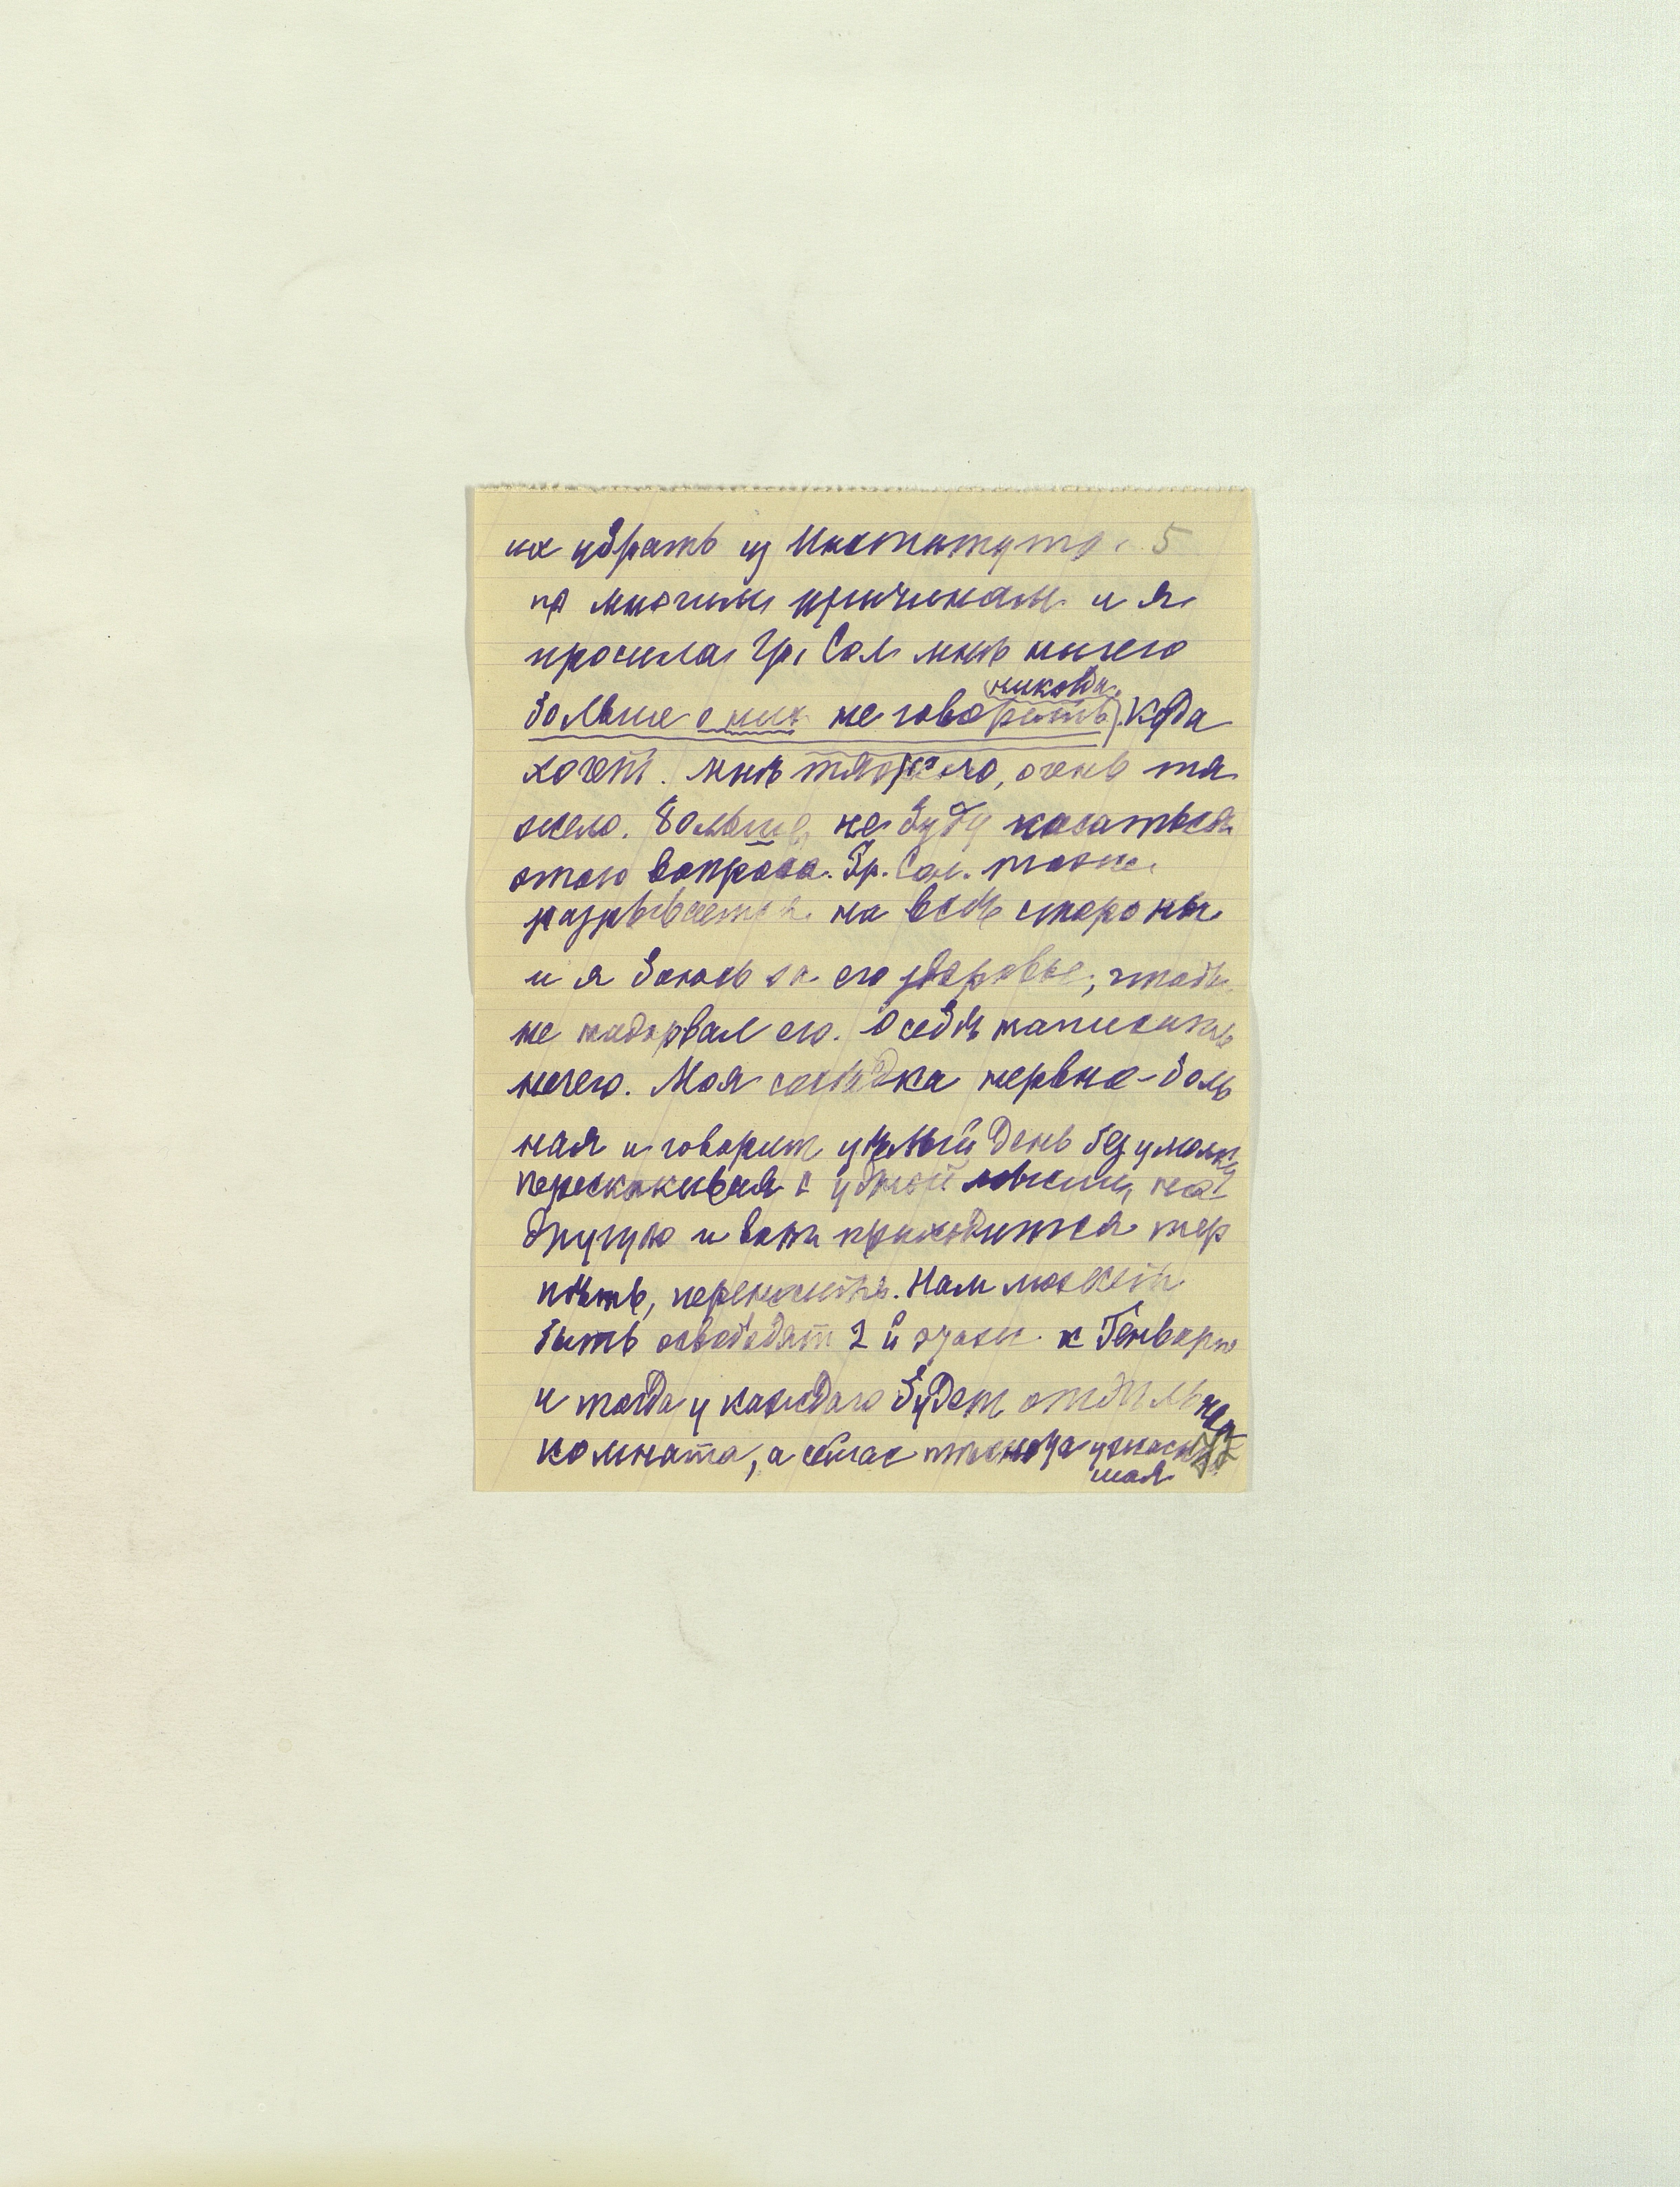 их убрать из Института. 5
по многим причинам и я
просила Гр. Сол мнѣ ничего
(никогда)
больше о них не говорить. Куда
хочет. Мнѣ тяжело, очень тя
жело. Больше не буду касаться
этого вопроса. Гр. Сол. тоже
разрывается на всѣ стороны
и я боюсь за его здоровье, чтобы
не надорвал его. О себѣ написать
нечего. Моя сосѣдка нервно-боль
ная и говорит цѣлый день без умолку
перескакивая с одной мысли на
другую и вот приходится тер
пѣть, переносить. Нам может
быть освободят 2й этаж к Генварю
и тогда у каждаго будет отдѣльная
комната, а сейчас тѣснота ужаснѣй
шая